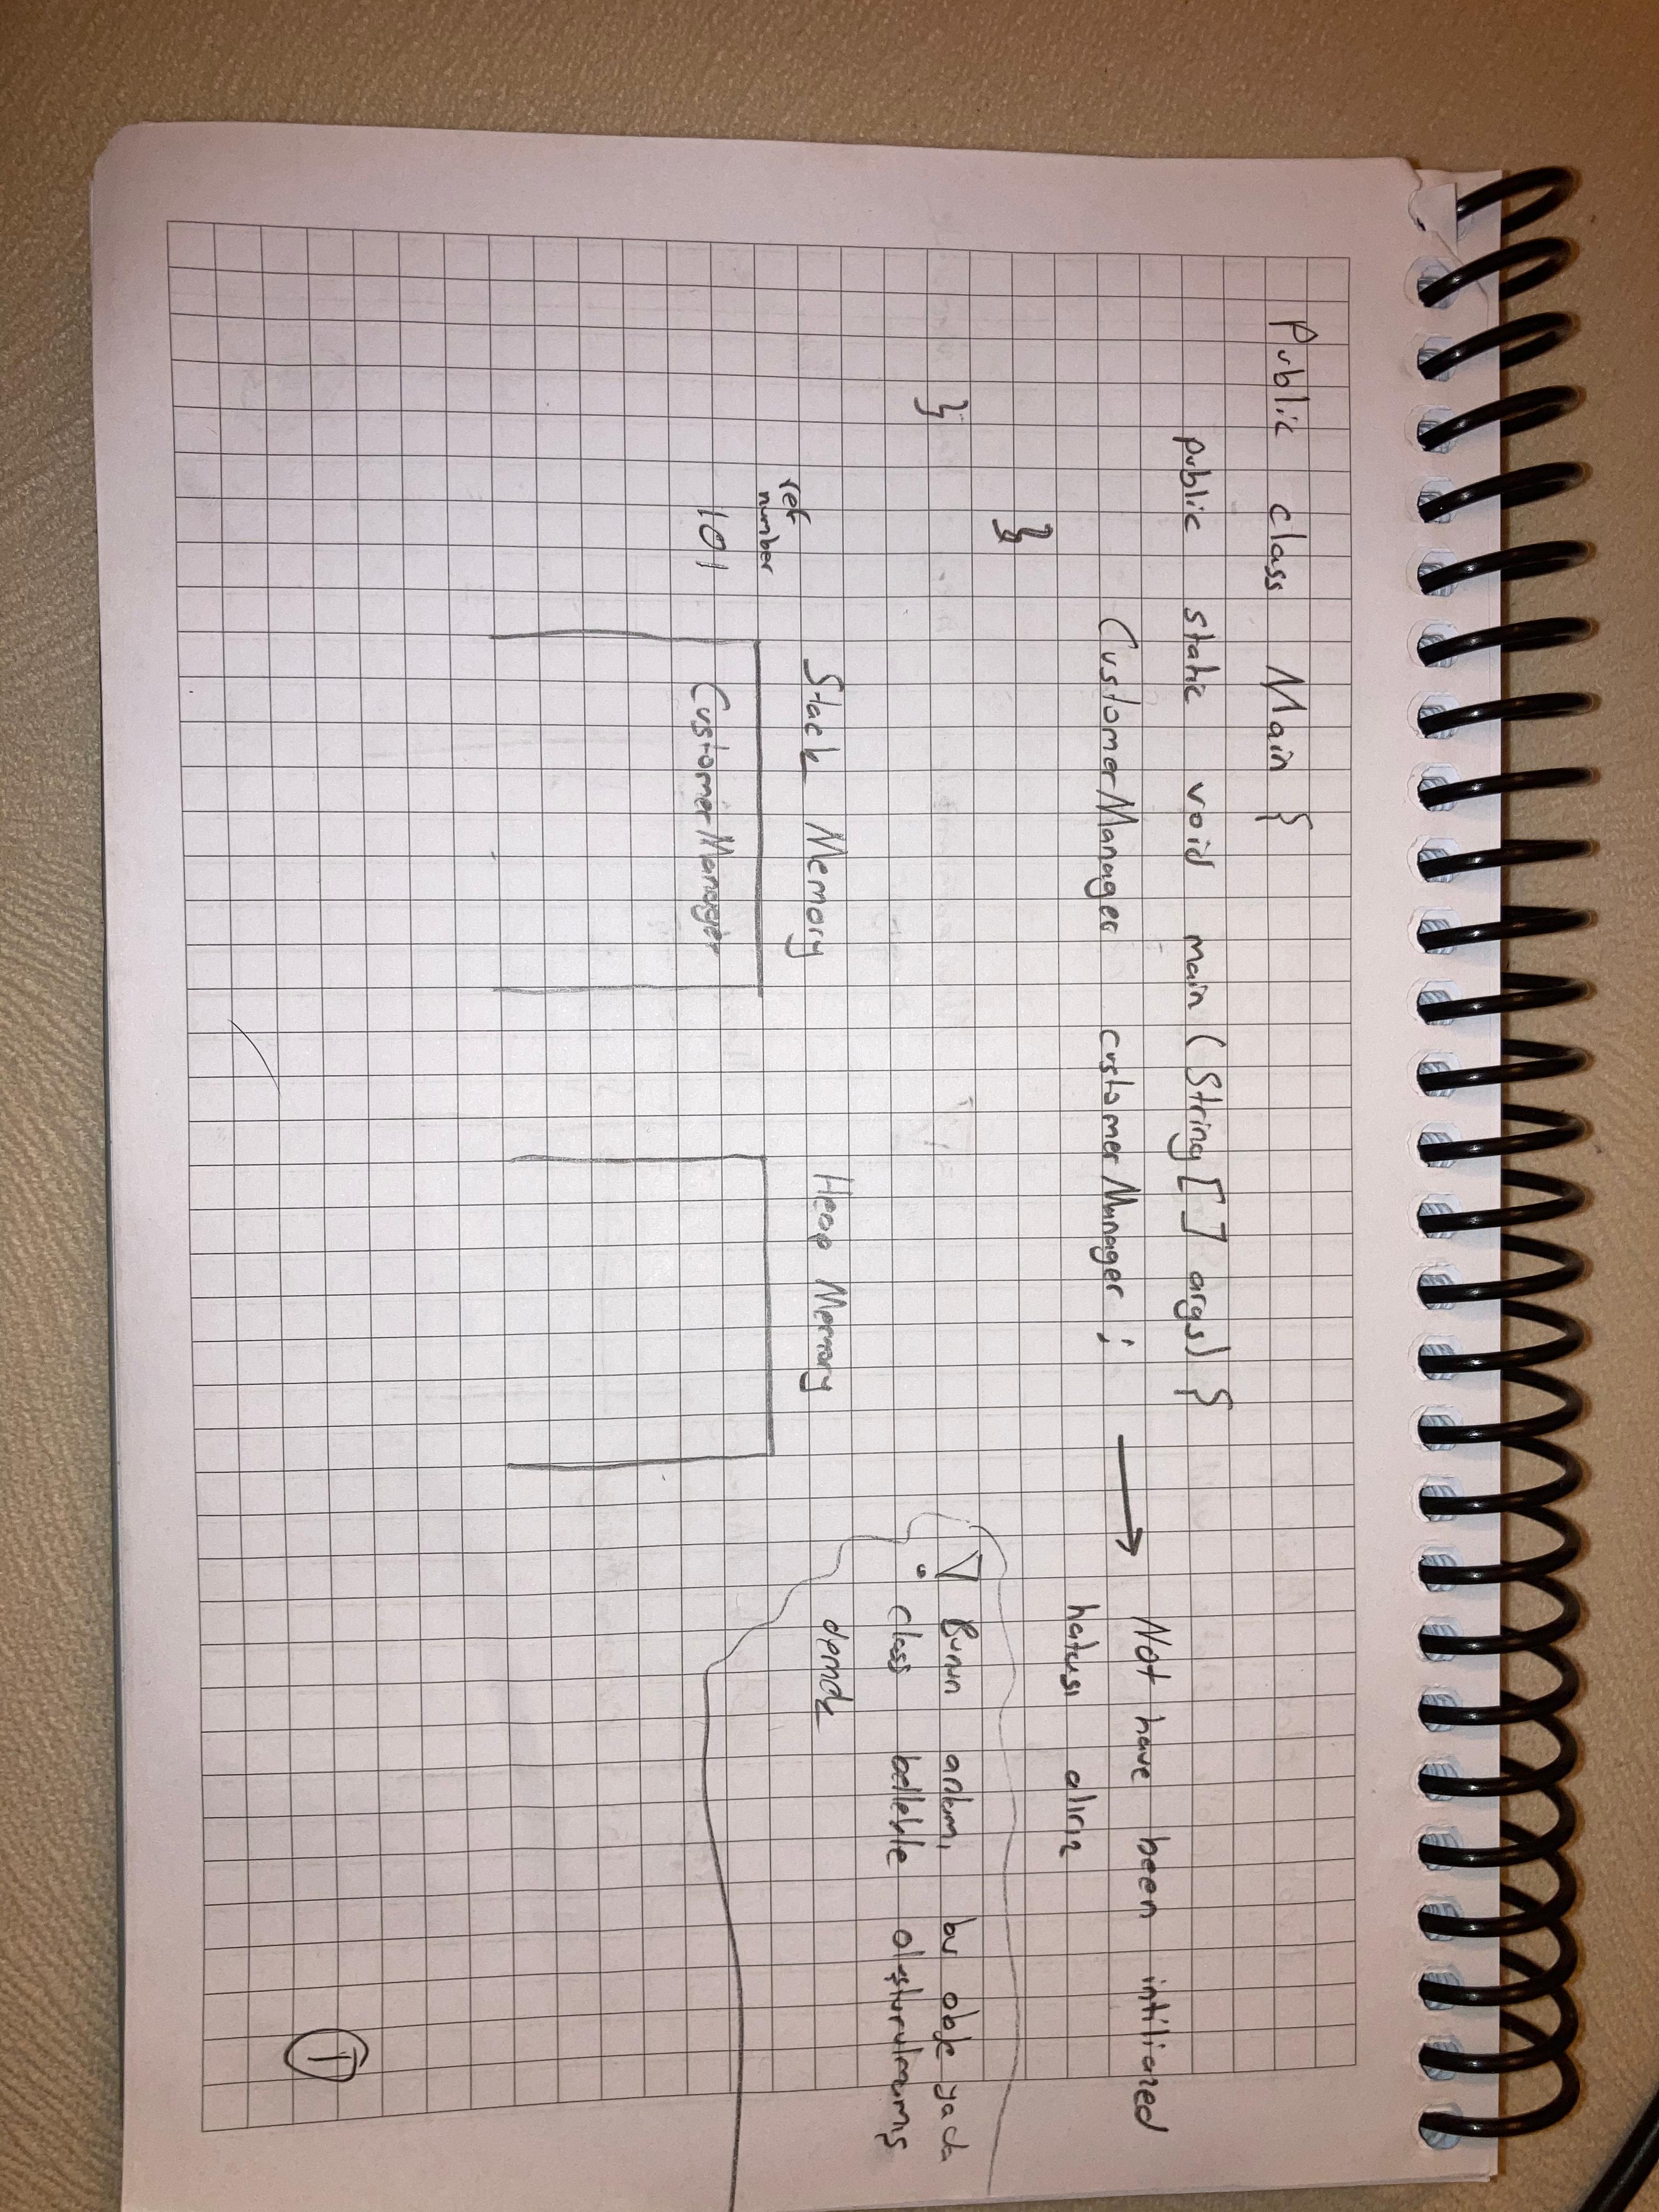 Public class Main {
public static void main (String [ ] args) {
CustomerManager customerManager ;
Not have been intiliazed
hatası alırız
}
}
! Bunun anlamı, bu obje yada
class bellekte oluşturulmamış
demek
Stack Memory
Heap Memory
ref
number
101
CustomerManager
1